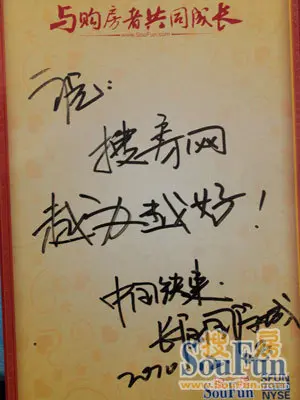 与购房者共同成长
www.SouFun.com
祝：
搜房网
越办越好！
中国铁建
2010
搜房
SouFun
SouFun
SFUN
NYSE